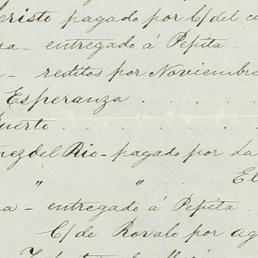 cristo pagado por C/ del
a - entregado á Pepita.
- reditos por Noviembre
Esperanza . . .
Puerto . . .
nez del Rio - pagado por La
" " El
a - entregado á Pepita.
C/ de Rovalo por ag